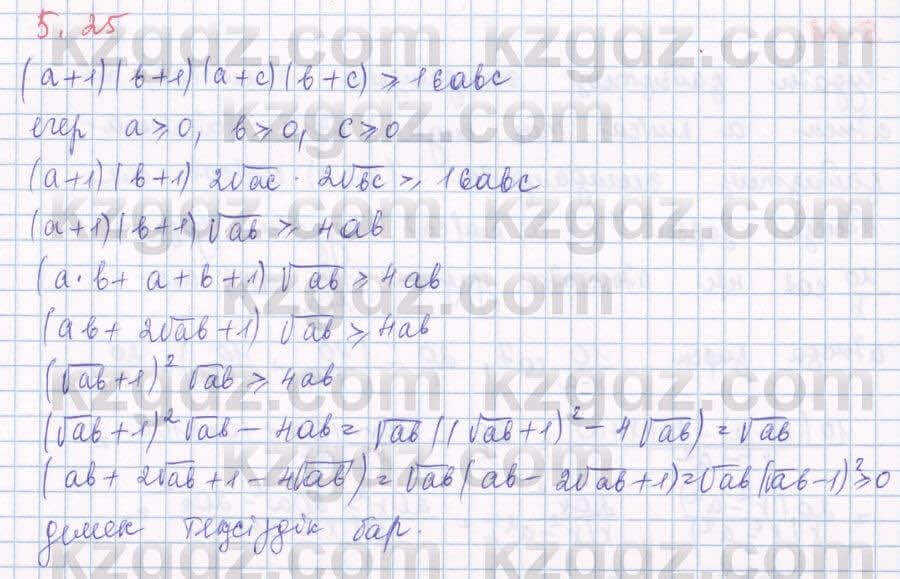 5.25
(a+1)(b+1)(a+c)(b+c) ⩾ 16abc
егер a⩾0, b⩾0, c⩾0
(a+1)(b+1) 2√ac · 2√bc ⩾ 16abc
(a+1)(b+1)√ab ⩾ 4ab
(a·b+a+b+1)√ab ⩾ 4ab
(ab+2√ab+1)√ab ⩾ 4ab
(√ab+1)²√ab ⩾ 4ab
(√ab+1)²√ab − 4ab = √ab((√ab+1)² − 4√ab) = √ab
(ab+2√ab+1−4√ab) = √ab(ab−2√ab+1) = √ab(√ab−1)² ⩾ 0
демек теңсіздік бар.
kzgdz.com